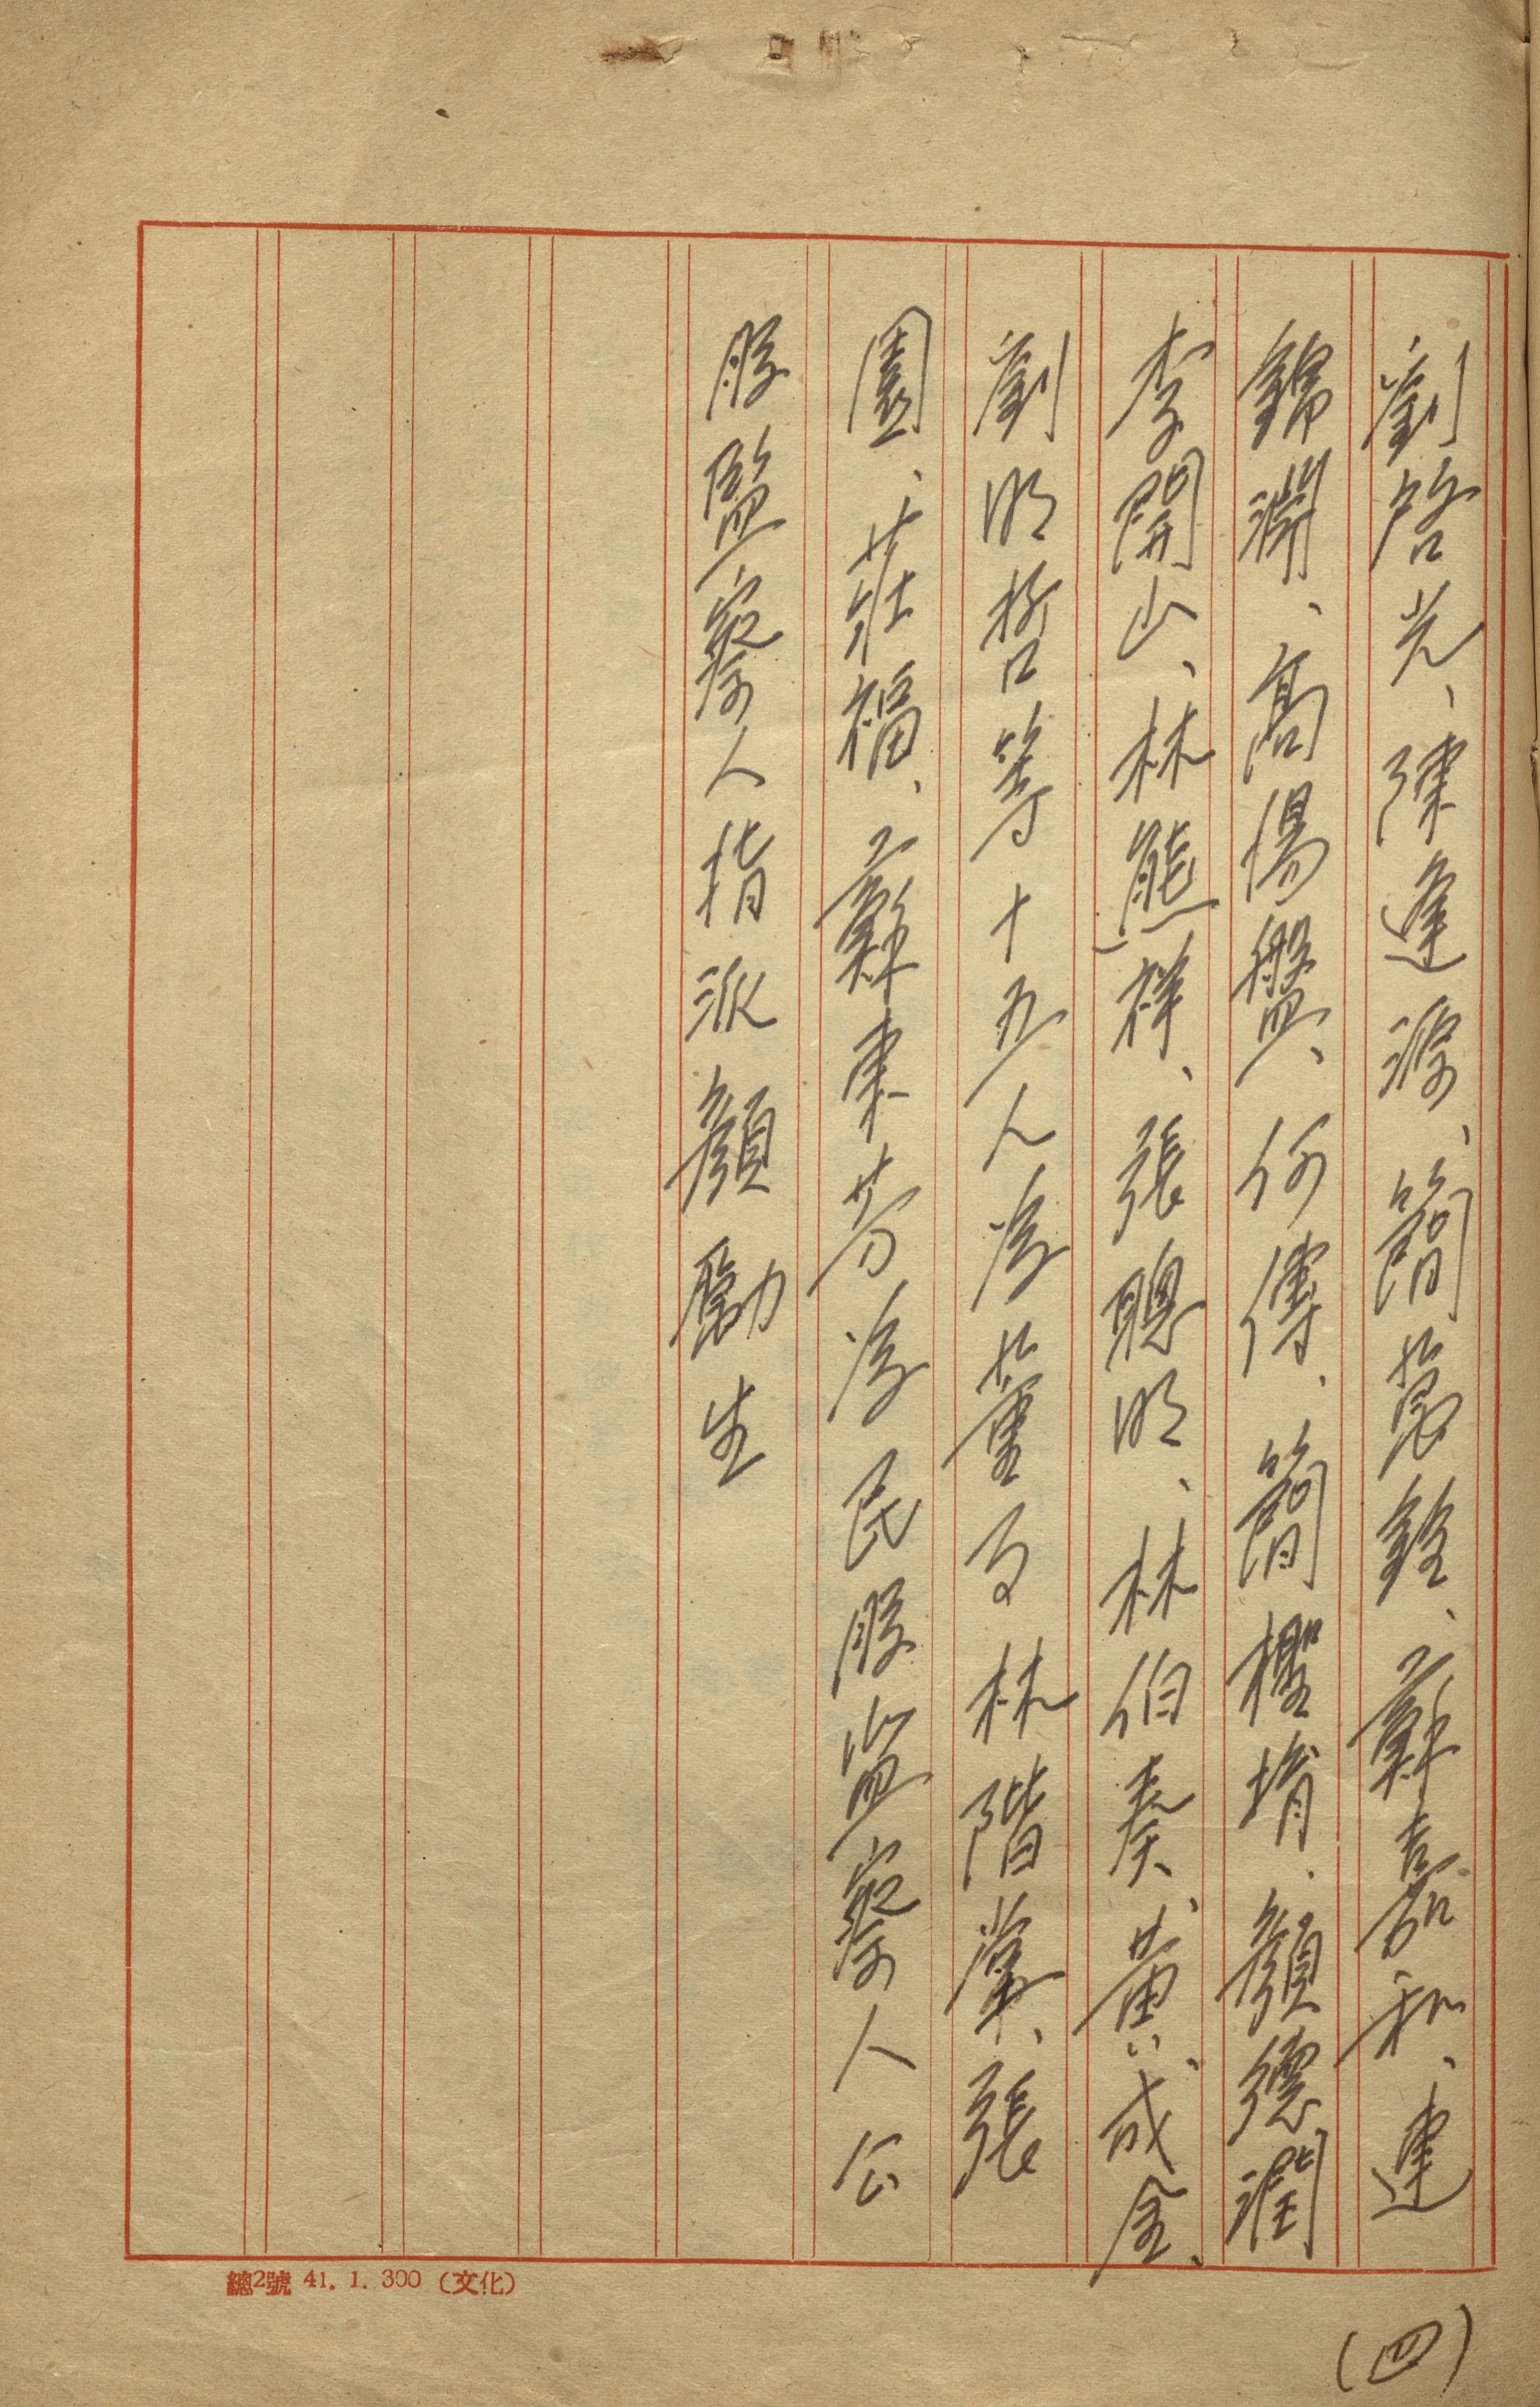 劉啓光、陳逢源、簡萬銓、蘇嘉和、連
錦淵、高湯盤、何傳、簡檉堉、顏德潤
李開山、林熊祥、張聰明、林伯奏、黃成金、
劉明哲等十五人為董事林階堂、張
園、莊福、蘇東芳為民股監察人公
股監察人指派顏勵生
總2號 41. 1. 300 (文化)
(四)